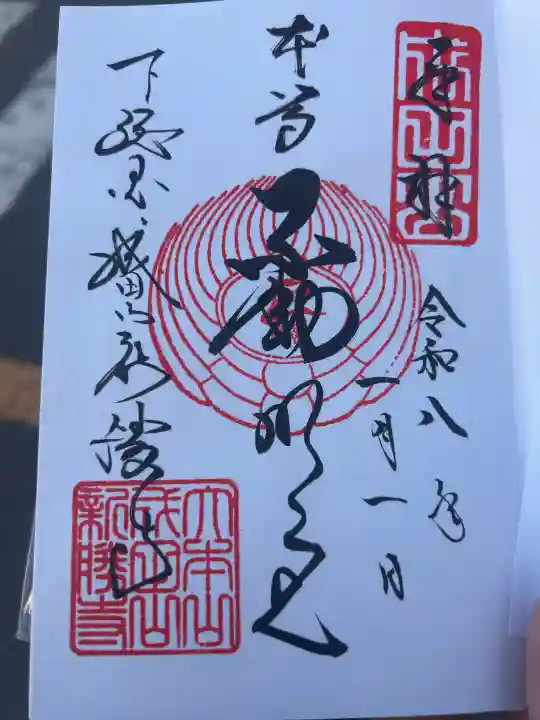 奉拝
成田山
令和八年
一月一日
本尊
不動明王
下総国成田山新勝寺
大本山
成田山
新勝寺